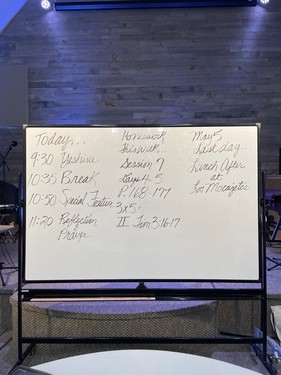 Today...
9:30 Yeshiva
10:35 Break
10:50 Special Feature
11:20 Reflection
Prayer
Homework
this week...
Session 7
Days 4-5
P. 168-177
3x5:
II Tim 3:16-17
May 5
Last day...
Lunch After
at
Los Mezcales